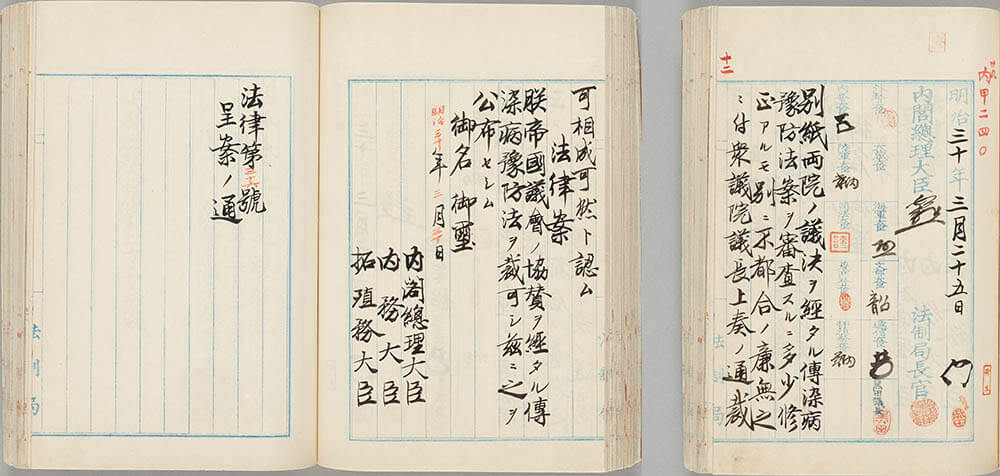 内甲二四〇
明治三十年三月二十五日
内閣總理大臣
法制局長官
十二
別紙兩院ノ議決ヲ經タル傳染病
豫防法案ヲ審査スルニ多少修
正アルモ別ニ不都合ノ廉無之
ニ付衆議院議長上奏ノ通裁
可相成可然ト認ム
法律案
朕帝國議會ノ協賛ヲ經タル傳
染病豫防法ヲ裁可シ茲ニ之ヲ
公布セシム
御名御璽
明治三十年三月三十日
内閣總理大臣
内務大臣
拓殖務大臣
法律第三十六號
呈案ノ通
法制局